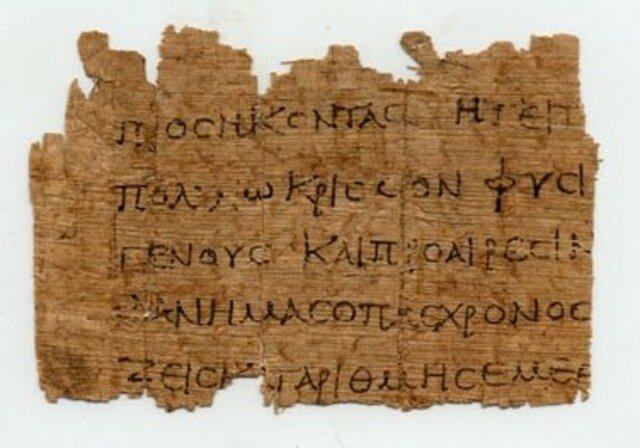 ΠΡΟϹΗΚΟΝΤΑϹ ΗΤΕΠ
ΠΟΛΛΩ ΚΡΙϹϹΟΝ ΦΥϹΙ
ΓΕΝΟΥϹ ΚΑΙΠΡΟΑΙΡΕϹΙΝ
ΑΝΗΜΑϹΟΠΑϹΧΡΟΝΟϹ
ΖΕΙϹΚΑΤΑΡΙΘΜΗϹΕΜΕ